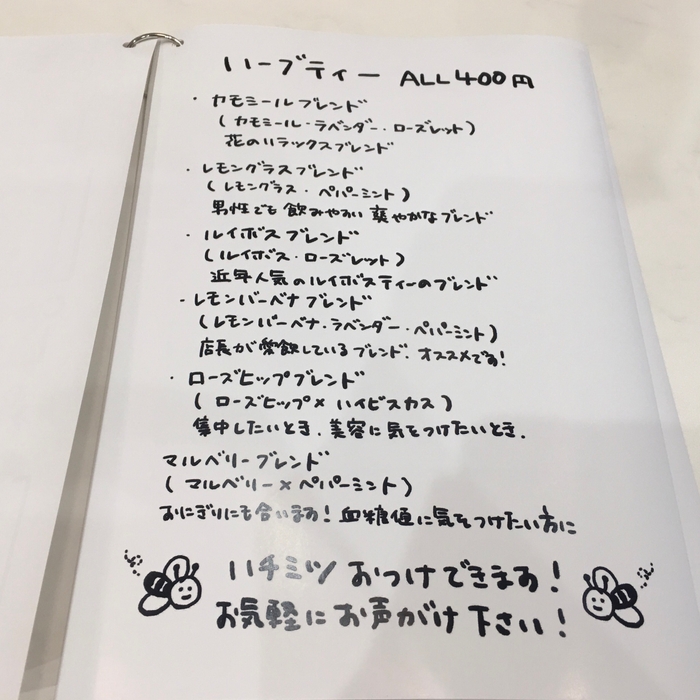 ハーブティー ALL400円
・カモミールブレンド
(カモミール・ラベンダー・ローズレット)
花のリラックスブレンド
・レモングラスブレンド
(レモングラス・ペパーミント)
男性でも飲みやすい爽やかなブレンド
・ルイボスブレンド
(ルイボス・ローズレット)
近年人気のルイボスティーのブレンド
・レモンバーベナブレンド
(レモンバーベナ・ラベンダー・ペパーミント)
店長が愛飲しているブレンド。オススメです!
・ローズヒップブレンド
(ローズヒップ×ハイビスカス)
集中したいとき。美容に気をつけたいとき。
マルベリーブレンド
(マルベリー×ペパーミント)
おにぎりにも合います!血糖値に気をつけたい方に
ハチミツおつけできます!
お気軽にお声がけ下さい!